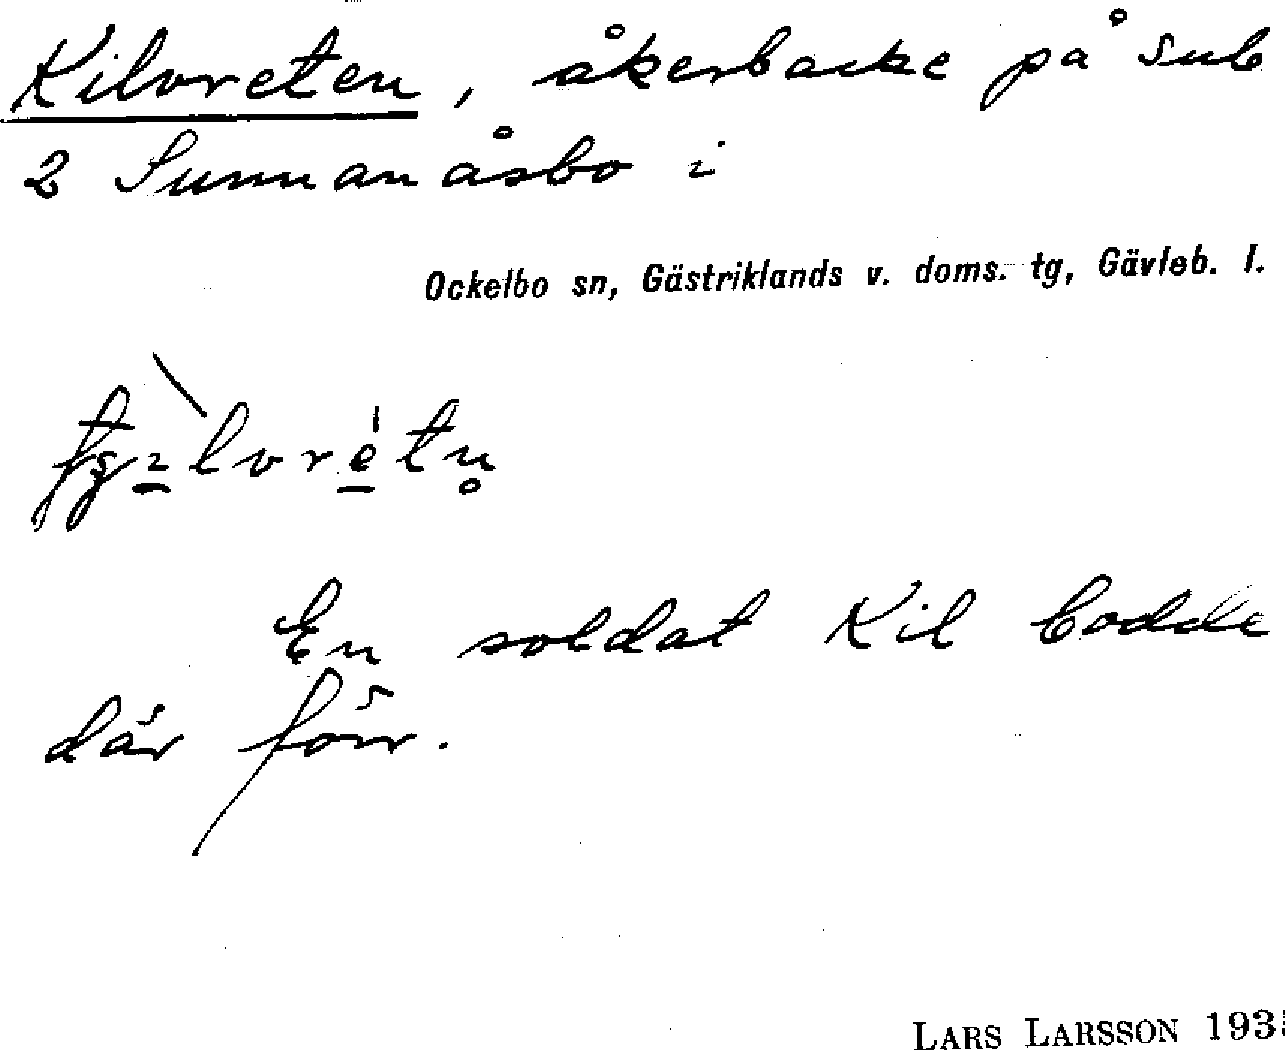 Kilvreten, åkerbacke på sub
2 Sunnanåsbo i
Ockelbo sn, Gästriklands v. doms. tg, Gävleb. l.
En soldat Kil bodde
där förr.
LARS LARSSON 193